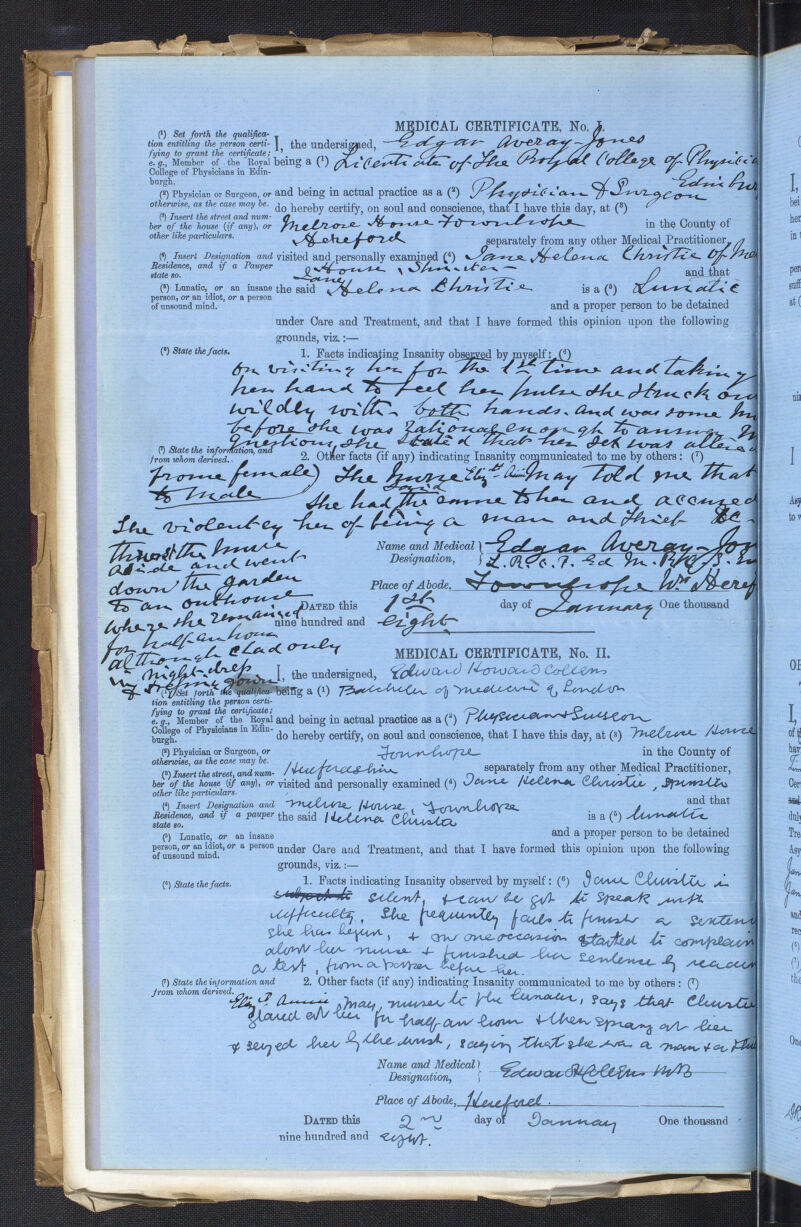 MEDICAL CERTIFICATE, No. I.
(¹) Set forth the qualifica-
tion entitling the person certi-
fying to grant the certificate;
e. g., Member of the Royal
College of Physicians in Edin-
burgh.
I, the undersigned, Edgar Averay-Jones
being a (¹) Licentiate of the Royal College of Physici
Edinbur
(²) Physician or Surgeon, or
otherwise, as the case may be.
and being in actual practice as a (²) Physician & Surgeon
do hereby certify, on soul and conscience, that I have this day, at (³)
(³) Insert the street and num-
ber of the house (if any), or
other like particulars.
Melrose House Fownhope in the County of
Hereford separately from any other Medical Practitioner,
(⁴) Insert Designation and
Residence, and if a Pauper
state so.
visited and personally examined (⁴) Jane Helena Christie of Me
House, Spinster and that
(⁵) Lunatic, or an insane
person, or an idiot, or a person
of unsound mind.
Jane
the said Helena Christie is a (⁵) Lunatic
and a proper person to be detained
under Care and Treatment, and that I have formed this opinion upon the following
grounds, viz. :—
(⁶) State the facts.
1. Facts indicating Insanity observed by myself: (⁶)
On visiting her for the 1st time and taking
her hand to feel her pulse she struck ou
wildly with both hands. And was some
before she was rational enough to answer
questions, she stated that her sex was altered
(⁷) State the information, and
from whom derived.
2. Other facts (if any) indicating Insanity communicated to me by others: (⁷)
from female) The Nurse Elizth Ann May told me that
to male
she had said the same to her and accused
She violently her of being a man and thief &c-
thrust the nurse
aside and went
down the garden
to an outhouse
where she remained
for half an hour
although clad only
in night-dress
& dressing gown
Name and Medical Designation, Edgar Averay-Jon
L.R.C.P. Ed M.R.C.S. En
Place of Abode, Fownhope Nr Heref
DATED this 1st day of January One thousand
nine hundred and eight
MEDICAL CERTIFICATE, No. II.
I, the undersigned, Edward Howard Collens
(¹) Set forth the qualifica-
tion entitling the person certi-
fying to grant the certificate;
e. g., Member of the Royal
College of Physicians in Edin-
burgh.
being a (¹) Batcheler of medicine of London
and being in actual practice as a (²) Physician & Surgeon
do hereby certify, on soul and conscience, that I have this day, at (³) Melrose House
(²) Physician or Surgeon, or
otherwise, as the case may be.
Fownhope in the County of
(³) Insert the street, and num-
ber of the house (if any), or
other like particulars.
Herefordshire separately from any other Medical Practitioner,
visited and personally examined (⁴) Jane Helena Christie, spinster
(⁴) Insert Designation and
Residence, and if a pauper
state so.
Melrose House, Fownhope and that
the said Helena Christie is a (⁵) lunatic
(⁵) Lunatic, or an insane
person, or an idiot, or a person
of unsound mind.
and a proper person to be detained
under Care and Treatment, and that I have formed this opinion upon the following
grounds, viz. :—
(⁶) State the facts.
1. Facts indicating Insanity observed by myself: (⁶) Jane Christie is
silent, & can be got to speak with
difficulty. She frequently fails to finish a senten
she has begun, & on one occasion started to complain
about her nurse & finished her sentence by readin
a text, from a paper before her.
(⁷) State the information and
from whom derived.
2. Other facts (if any) indicating Insanity communicated to me by others: (⁷)
Elizth Annie May, nurse to the lunatic, says that Christie
glared at her for half an hour & then sprang at her
& seized her by the wrist, saying that she was a man & a thie
Name and Medical Designation, Edward H Collens MB
Place of Abode, Hereford.
DATED this 2nd day of January One thousand
nine hundred and eight.